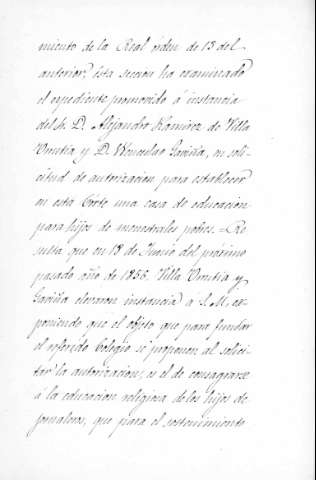 miento de la Real órden de 13 del
anterior, ésta seccion ha examinado
el expediente promovido á instancia
del Sr. D. Alejandro Ramirez de Villa
Urrutia y D. Wenceslao Gaviña, en soli-
citud de autorizacion para establecer
en esta Córte una casa de educacion
para hijos de menestrales pobres. = Re
sulta que en 18 de Junio del próximo
pasado año de 1856. Villa Urrutia y
Gaviña elevaron instancia á S. M. ex-
poniendo que el objeto que para fundar
el referido Colegio se proponen al solici-
tar la autorizacion, es el de consagrarse
á la educacion religiosa de los hijos de
jornaleros, que para el sostenimiento